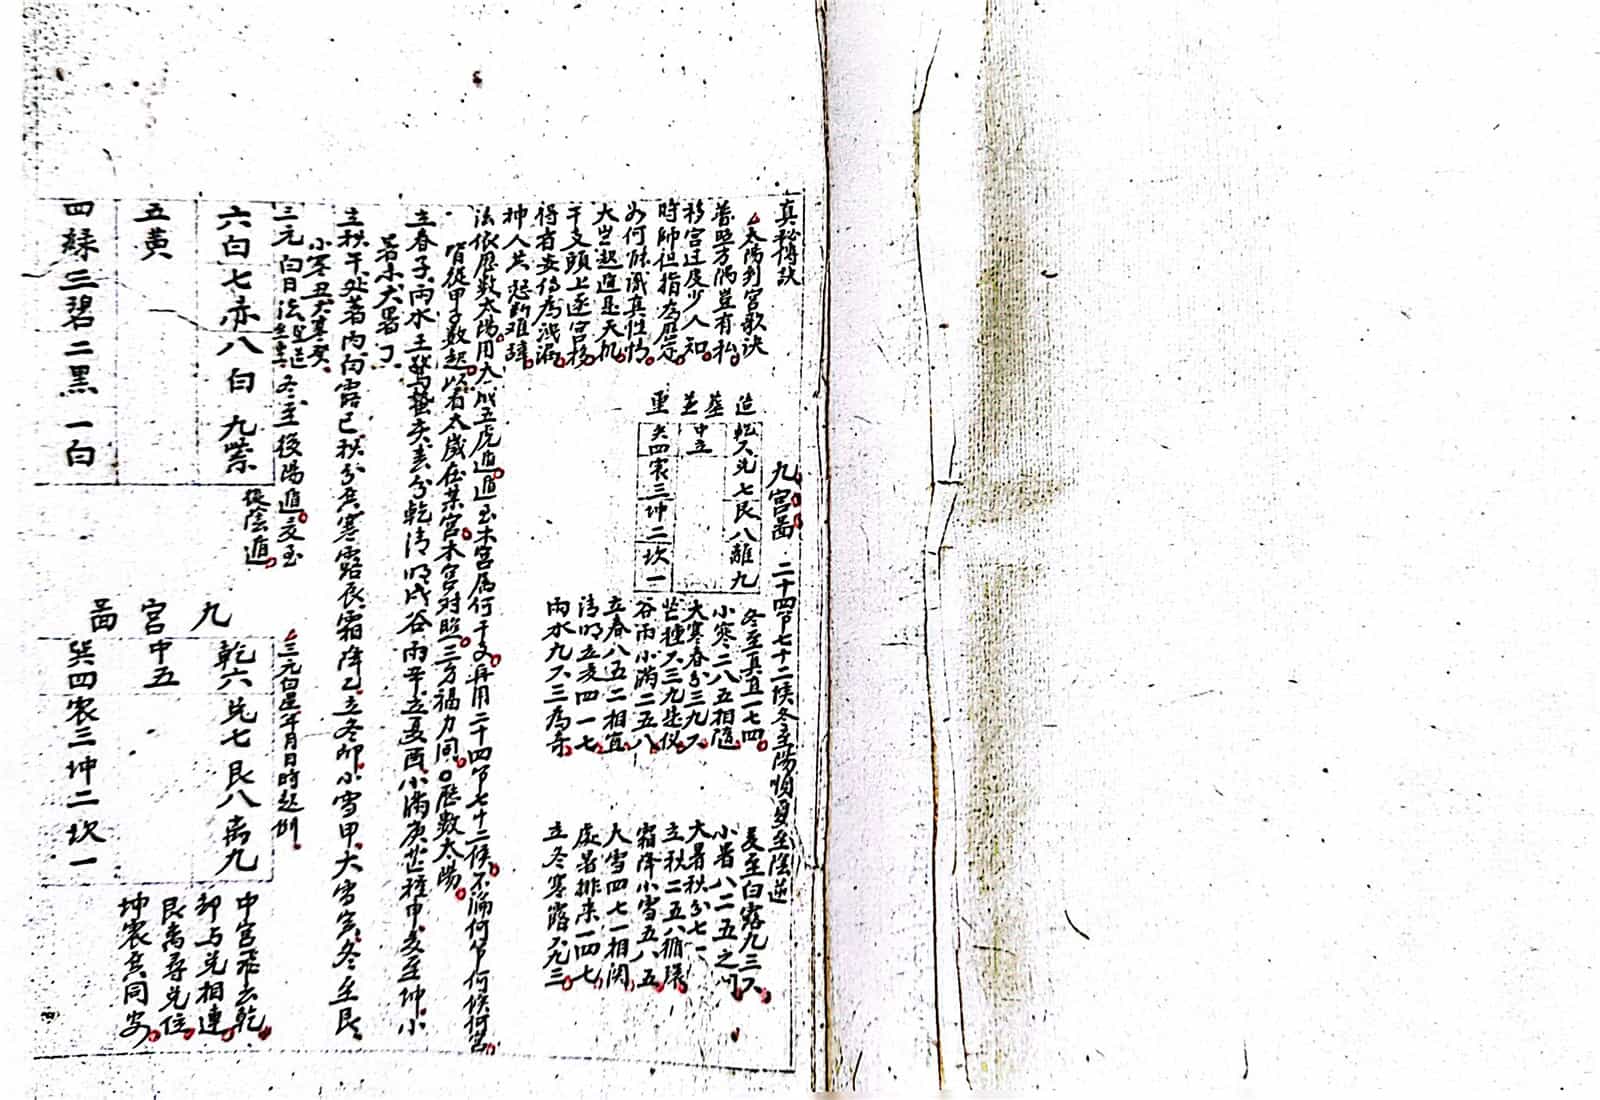 真秘搏訣
太陽到宮歌诀
普照方隅豈有私
移宮过度少人知
時師但指為歷定
如何能識真性情
大出起遁是天机
干支頭上逐宮移
得者妄传為洩漏
神人共怒断难辞
九宮畐
造
葬
並
重
乾六兑七艮八離九
中五
巽四震三坤二坎一
二十四节七十二候冬至陽順夏至陰逆
冬至真且一七四
小寒二八五相随
大寒春分三九六
芒種六三九是仪
谷雨小满二五八
立春八五二相宜
清明立夏四一七
雨水九六三為奇
夏至白露九三六
小暑八二五之间
大暑秋分七一
立秋二五八循環
霜降小雪五八五
大雪四七一相関
處暑排来一四七
立冬寒露六九三
法依歷数太陽用大成五虎遁遁至本宮属何干支再用二十四节七十二候不論何节何候何宮
皆從甲子数起以看太歲在某宮本宮对照三方福力同○歷数太陽
立春子雨水壬驚蟄亥春分乾清明戌谷雨辛立夏酉小满庚芒種申夏至坤小
暑未大暑丁
立秋午处暑丙白露巳秋分巽寒露辰霜降乙立冬卯小雪甲大雪寅冬至艮
小寒丑大寒癸
三元白日法
冬至後陽遁夏至
後陰遁
三元白星年月日時起例
六白七赤八白九紫
五黄
四緑三碧二黑一白
九宮畐
乾六兑七艮八离九
中五
巽四震三坤二坎一
中宮飛去乾
却与兑相連
艮离尋兑位
坤震巽同安